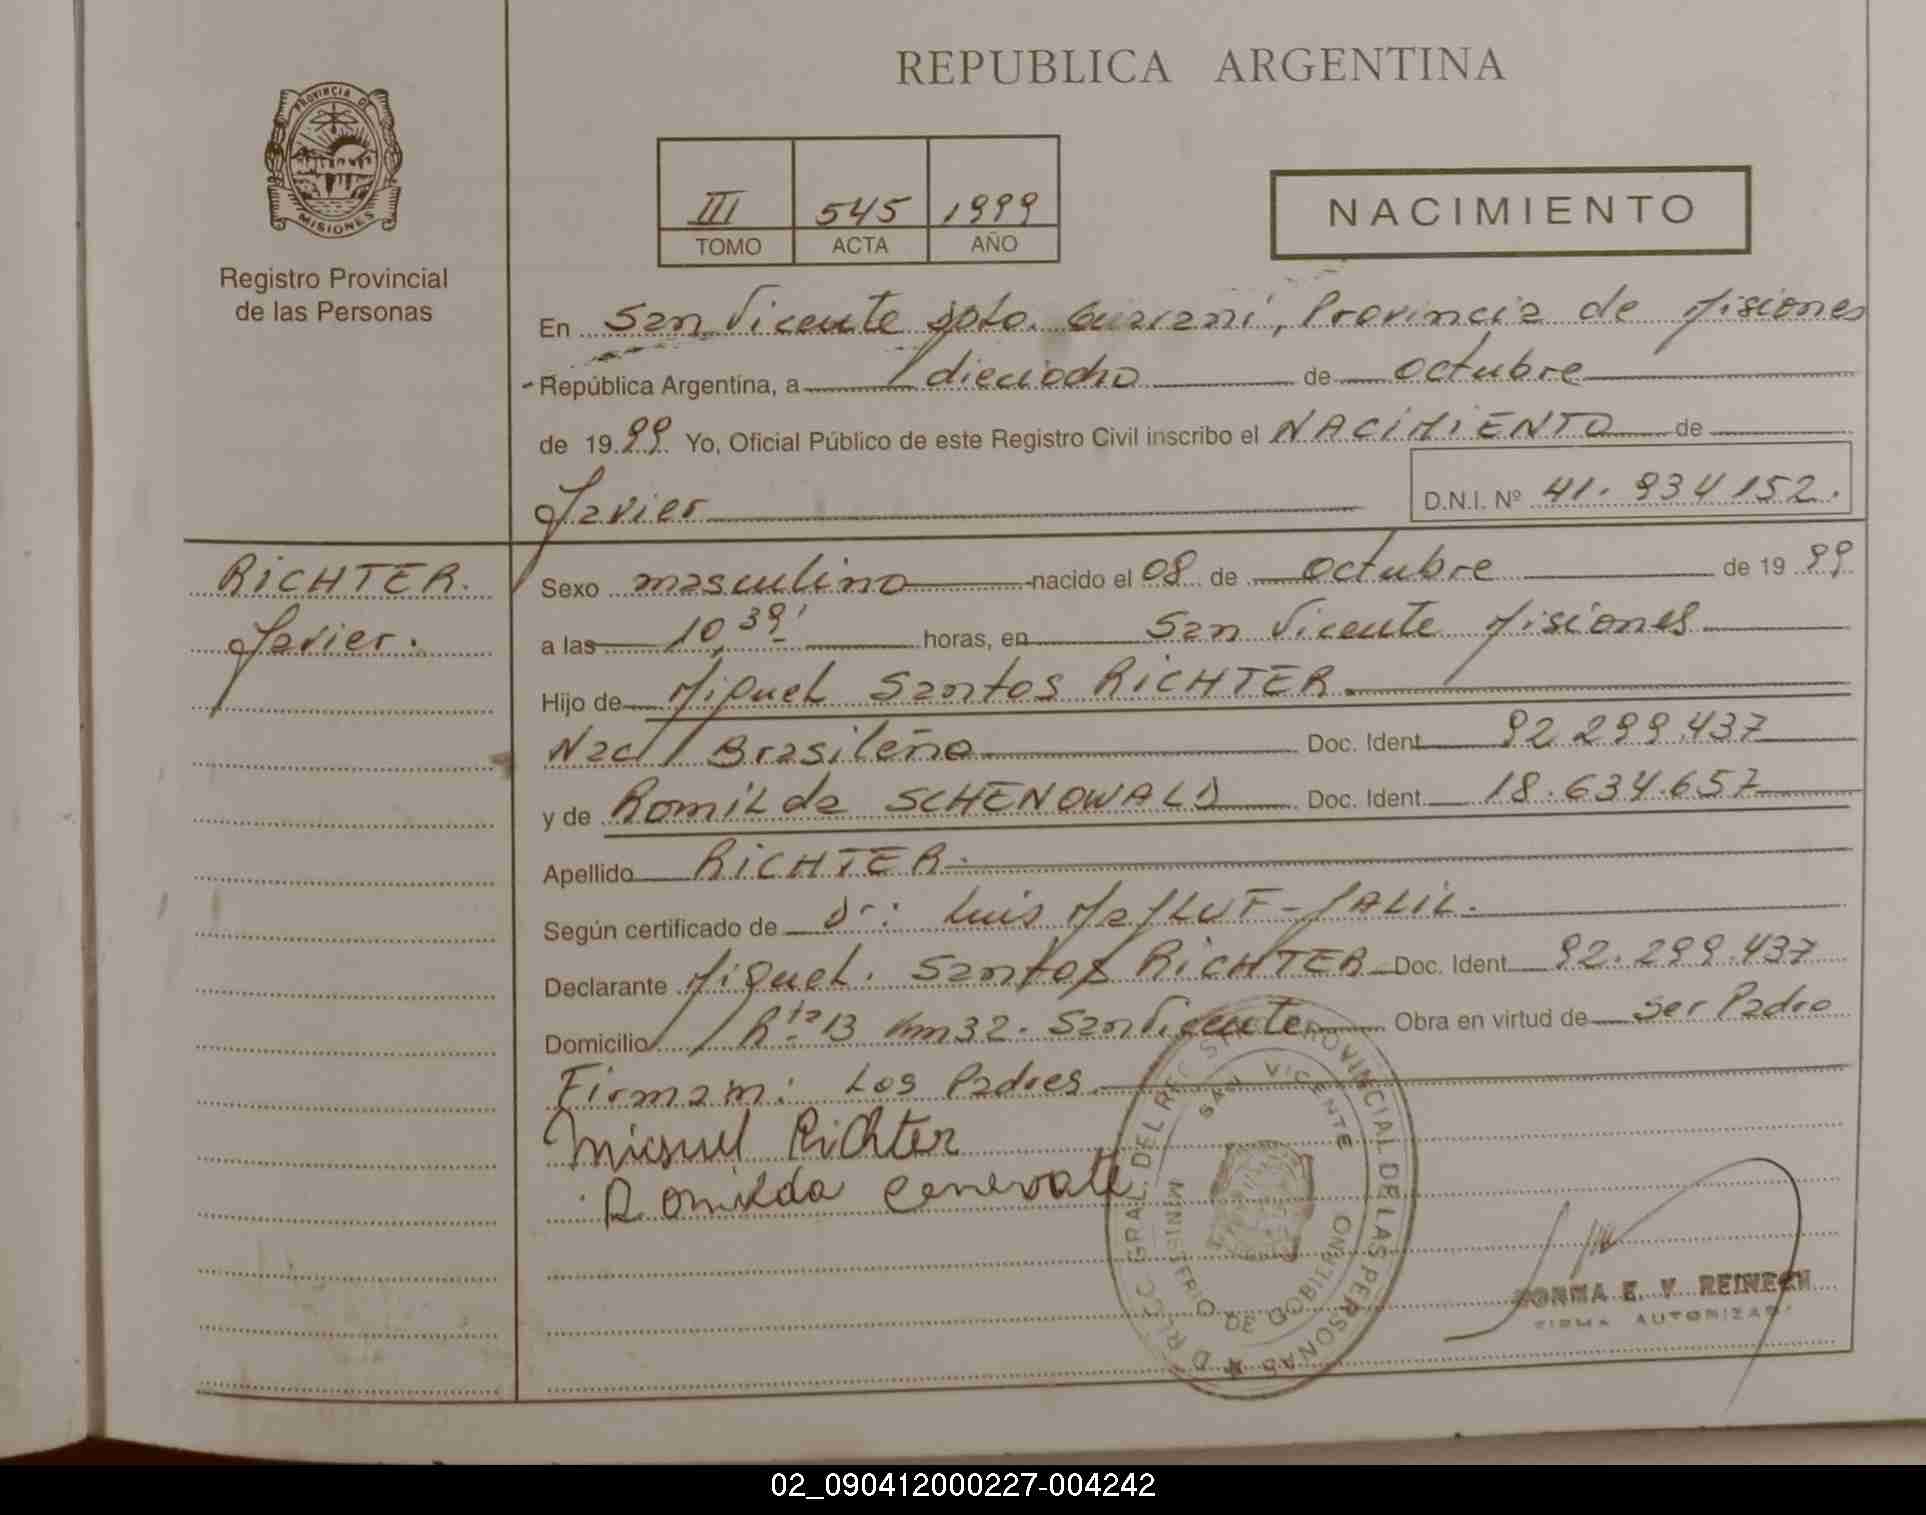 REPUBLICA ARGENTINA
PROVINCIA DE
MISIONES
Registro Provincial
de las Personas
III 545 1999
TOMO ACTA AÑO
NACIMIENTO
En San Vicente Dpto. Guaraní, Provincia de Misiones
República Argentina, a dieciocho de octubre
de 1999 Yo, Oficial Público de este Registro Civil inscribo el NACIMIENTO de
Javier D.N.I. Nº 41.934152.
RICHTER.
Javier.
Sexo masculino nacido el 08 de octubre de 1999
a las 10,39' horas, en San Vicente Misiones
Hijo de Miguel Santos RICHTER.
Nac/ Brasileña Doc. Ident. 92.299.437
y de Romilda SCHENOWALD Doc. Ident. 18.634.657
Apellido RICHTER.
Según certificado de Dr: Luis
Declarante Miguel. Santos RICHTER Doc. Ident. 92.299.437
Domicilio Rta 13 Km 32. San Vicente Obra en virtud de ser Padre
Firman: Los Padres.
Miguel Richter
Romilda
GRAL. DEL REG PROVINCIAL DE LAS PERSONAS
SAN VICENTE
MINISTERIO DE GOBIERNO
E. V. REINECH
FIRMA AUTORIZADA
02_090412000227-004242